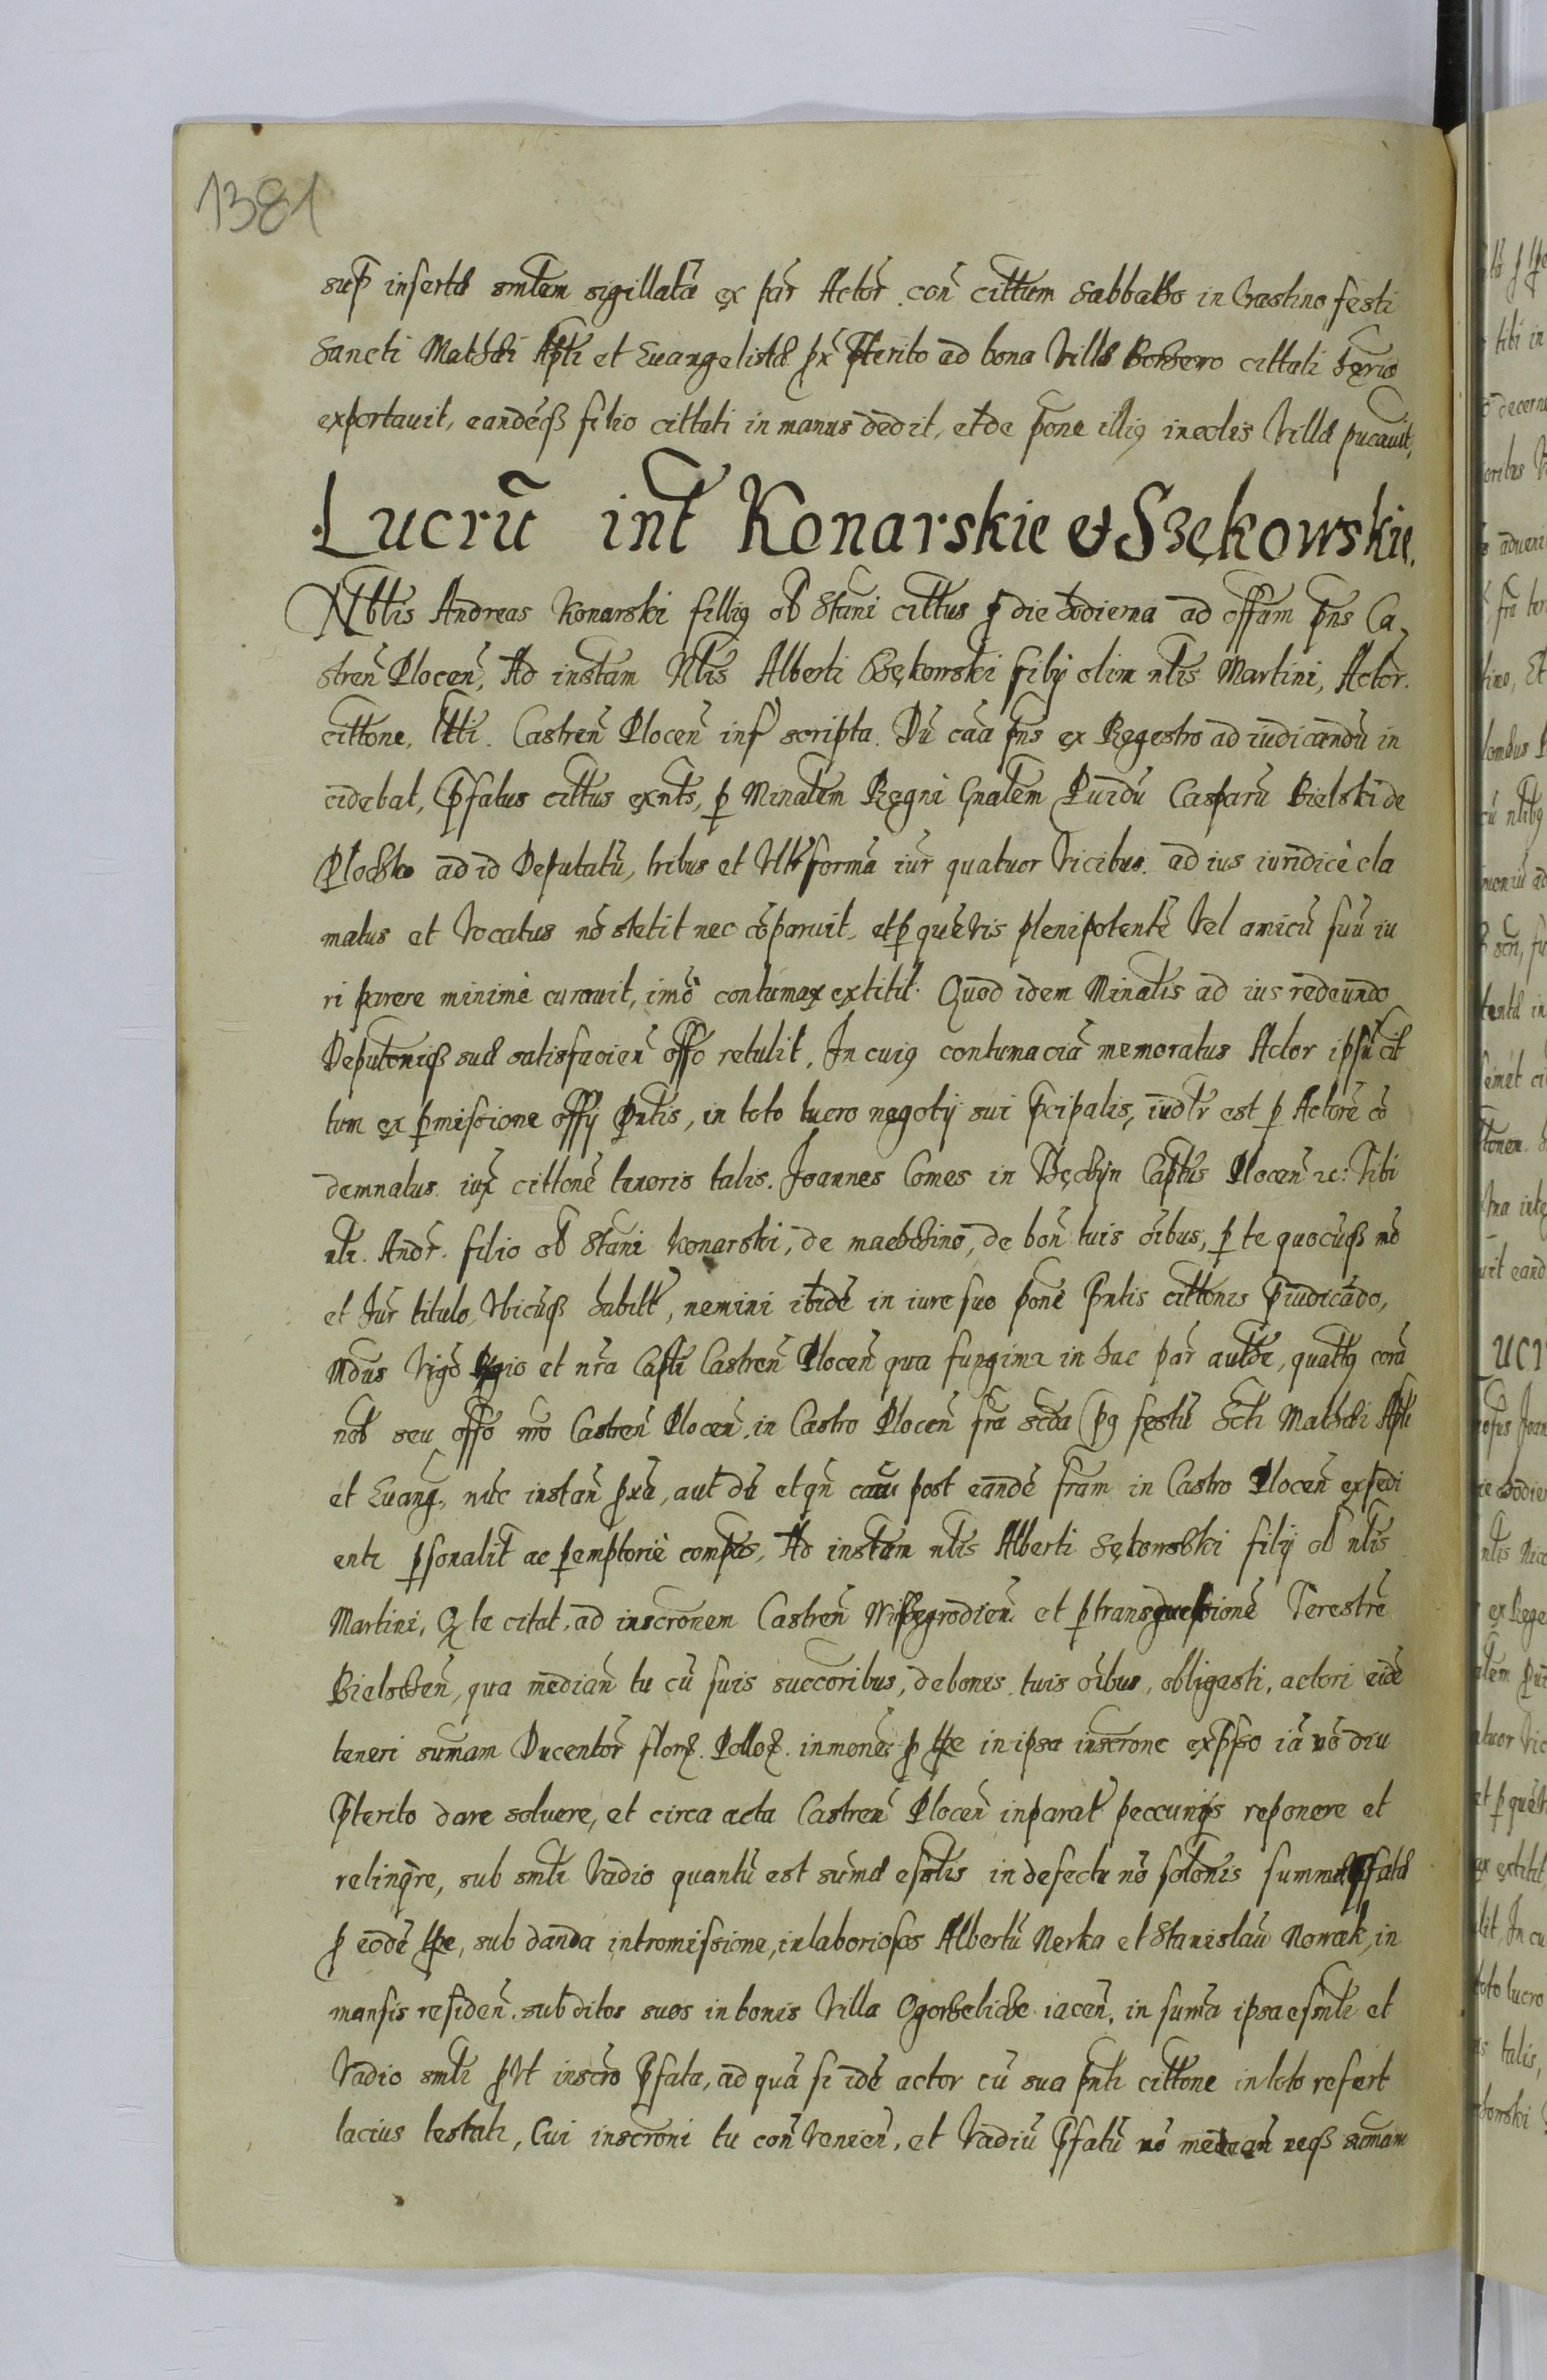 1381
sup insertã smlem sigillatã ex par Actor con cittum sabbatho in Crastino festi
Sancti Mathei Apti et Euangelistæ px pterito ad bona Villæ cittati
exportauit, eandeq filio cittati in manus dedit, et de pone illiq incolis Villæ pucauit,
Lucrũ int Konarskie et Szękowskie.
Nblis Andreas Konarski filliq ob Stani cittus p die hodierna ad offam pns Ca
stren Plocen, Ad instam Nlis Alberti Sękowski filij olim nlis Martini, Actor.
cittone, Ltti. Castren Plocen inf scripta. Dũ cãa pns ex Regestro ad iudicandũ in
cidebat, pfatus cittus exnts, p Minalem Regni Gnalem Puidũ Casparũ Bielski de
Plochko ad id Deputatũ, tribus et Vltr formã iur quatuor Vicibus. ad ius iuridicè cla
matus et Vocatus nõ stetit nec cõparuit, et p quẽvis plenipotentẽ Vel amicũ suũ iu
ri parere minimè curauit, imõ contumax extitit. Quod idem Minalis ad ius redeundo
Deputoniq suæ satisfacien offo retulit, In cuiq contumaciã memoratus Actor ipsũ cit
tum ex pmissione offij pntis, in toto lucro negotij sui pcipalis, iudtr est p Actorẽ cõ
demnatus iux cittonẽ tenoris talis. Joannes Comes in Captus Plocen zc: Tibi
nli. Andr. filio ob Stani Konarski, de, de bon tuis oĩbus, p te quocũq mõ
et Iur titulo, Vbicũq habitt, nemini ibidẽ in iure suo ponẽ pntis cittonis piudicãdo,
Mdus Vigõ Rgio et nra Capti Castren Plocen qua fungimr in hac par autte, quattq corã
nob seu offo nro Castren Plocen, in Castro Plocen fra scda pq festũ Scti Mathei Apti
et Euang, nũc instan pxẽ, aut dũ et qn cãu post eandẽ fram in Castro Plocen expedi
enti psonalit ac pemptoriè compas, Ad instam nlis Alberti Sękowski filij ob nlis
Martini, Q te citat, ad inscronem Castren Wissegrodien et p transgressionẽ Terestrẽ
Bielscen, qua median tu cũ suis succoribus, de bonis tuis oĩbus, obligasti, actori eidẽ
teneri sumam Ducentor florz. Polloz. in mone p tpe in ipsa inscrone expsso iã nõ diu
pterito dare soluere, et circa acta Castren Plocen in parat peccunijs reponere et
relinqre, sub smli Vadio quantũ est sumæ esntis in defectu nõ solonis summæ pfatæ
p eodẽ tpe, sub danda intromissione, in laboriosos Albertũ Nerka et Stanislaũ Nowak, in
mansis residen. subditos suos in bonis Villa iacen, in suma ipsa esntli et
Vadio smli pvt inscro pfata, ad quã si idẽ actor cũ sua pnti cittone in toto refert
lacius testati, Cui inscroni tu con Venien, et Vadiũ pfatũ nõ neq sumam